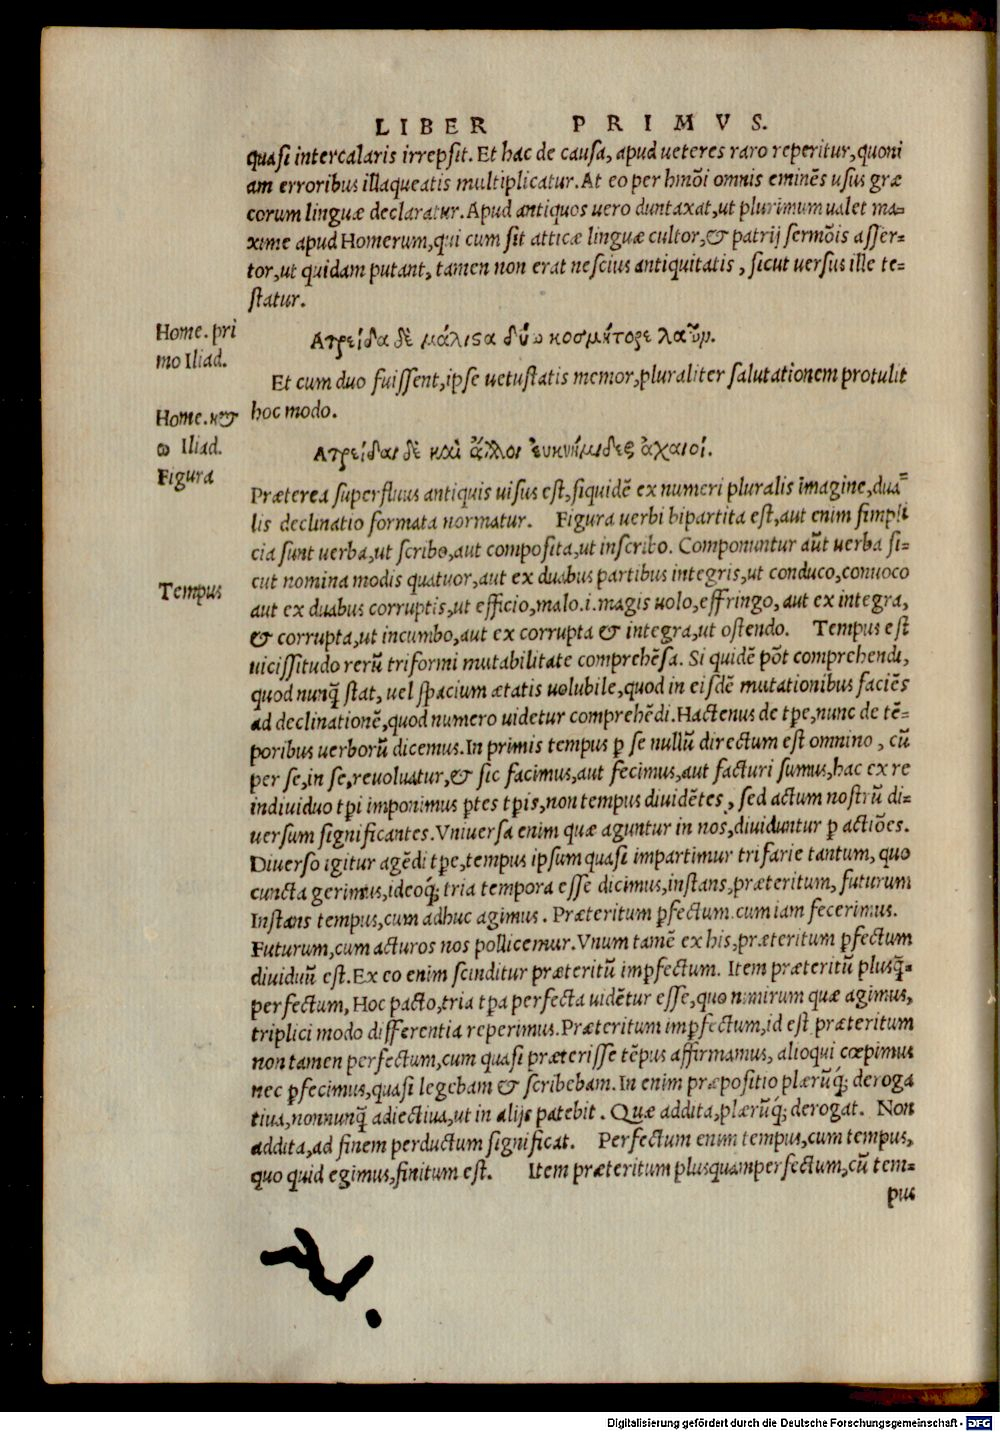 LIBER PRIMVS.
quasi intercalaris irrepsit. Et hac de causa, apud ueteres raro reperitur, quoni
am erroribus illaqueatis multiplicatur. At eo per hmõi omnis eminẽs usus græ
corum linguæ declaratur. Apud antiquos uero duntaxat, ut plurimum ualet ma-
xime apud Homerum, qui cum sit atticæ linguæ cultor, & patrij sermõis asser-
tor, ut quidam putant, tamen non erat nescius antiquitatis, sicut uersus ille te-
statur.
Home. pri
mo Iliad.
Ατρείδα δὲ μάλιϛα δύω κοσμήτορε λαῶν.
Et cum duo fuissent, ipse uetustatis memor, pluraliter salutationem protulit
hoc modo.
Home. κ &
ω Iliad.
Ατρείδαι δὲ καὶ ἄλλοι ἐυκνήμιδες ἀχαιοί.
Figura
Præterea superfluus antiquis uisus est, siquidẽ ex numeri pluralis imagine, dua-
lis declinatio formata normatur. Figura uerbi bipartita est, aut enim simpli
cia sunt uerba, ut scribo, aut composita, ut inscribo. Componuntur aũt uerba si-
cut nomina modis quatuor, aut ex duabus partibus integris, ut conduco, conuoco
aut ex duabus corruptis, ut efficio, malo .i. magis uolo, effringo, aut ex integra,
& corrupta, ut incumbo, aut ex corrupta & integra, ut ostendo. Tempus est
Tempus
uicissitudo rerũ triformi mutabilitate comprehẽsa. Si quidẽ põt comprehendi,
quod nunq̃ stat, uel spacium ætatis uolubile, quod in eisdẽ mutationibus faciẽs
ad declinationẽ, quod numero uidetur comprehẽdi. Hactenus de tꝑe, nunc de tẽ-
poribus uerborũ dicemus. In primis tempus ꝑ se nullũ directum est omnino, cũ
per se, in se, reuoluatur, & sic facimus, aut fecimus, aut facturi sumus, hac ex re
indiuiduo tꝑi imponimus ꝑtes tꝑis, non tempus diuidẽtes, sed actum nostrũ di-
uersum significantes. Vniuersa enim quæ aguntur in nos, diuiduntur ꝑ actiões.
Diuerso igitur agẽdi tꝑe, tempus ipsum quasi impartimur trifarie tantum, quo
cuncta gerimus, ideoq; tria tempora esse dicimus, instans, præteritum, futurum
Instans tempus, cum adhuc agimus. Præteritum ꝑfectum cum iam fecerimus.
Futurum, cum acturos nos pollicemur. Vnum tamẽ ex his, præteritum ꝑfectum
diuiduũ est. Ex eo enim scinditur præteritũ imꝑfectum. Item præteritũ plusq̃-
perfectum, Hoc pacto, tria tꝑa perfecta uidẽtur esse, quo nimirum quæ agimus,
triplici modo differentia reperimus. Præteritum imꝑfectum, id est præteritum
non tamen perfectum, cum quasi præterisse tẽpus affirmamus, alioqui cœpimus
nec ꝑfecimus, quasi legebam & scribebam. In enim præpositio plærũq́; deroga
tiua, nonnunq̃ adiectiua, ut in alijs patebit. Quæ addita, plærũq́; derogat. Non
addita, ad finem perductum significat. Perfectum enim tempus, cum tempus,
quo quid egimus, finitum est. Item præteritum plusquamperfectum, cũ tem-
pus
Digitalisierung gefördert durch die Deutsche Forschungsgemeinschaft - DFG